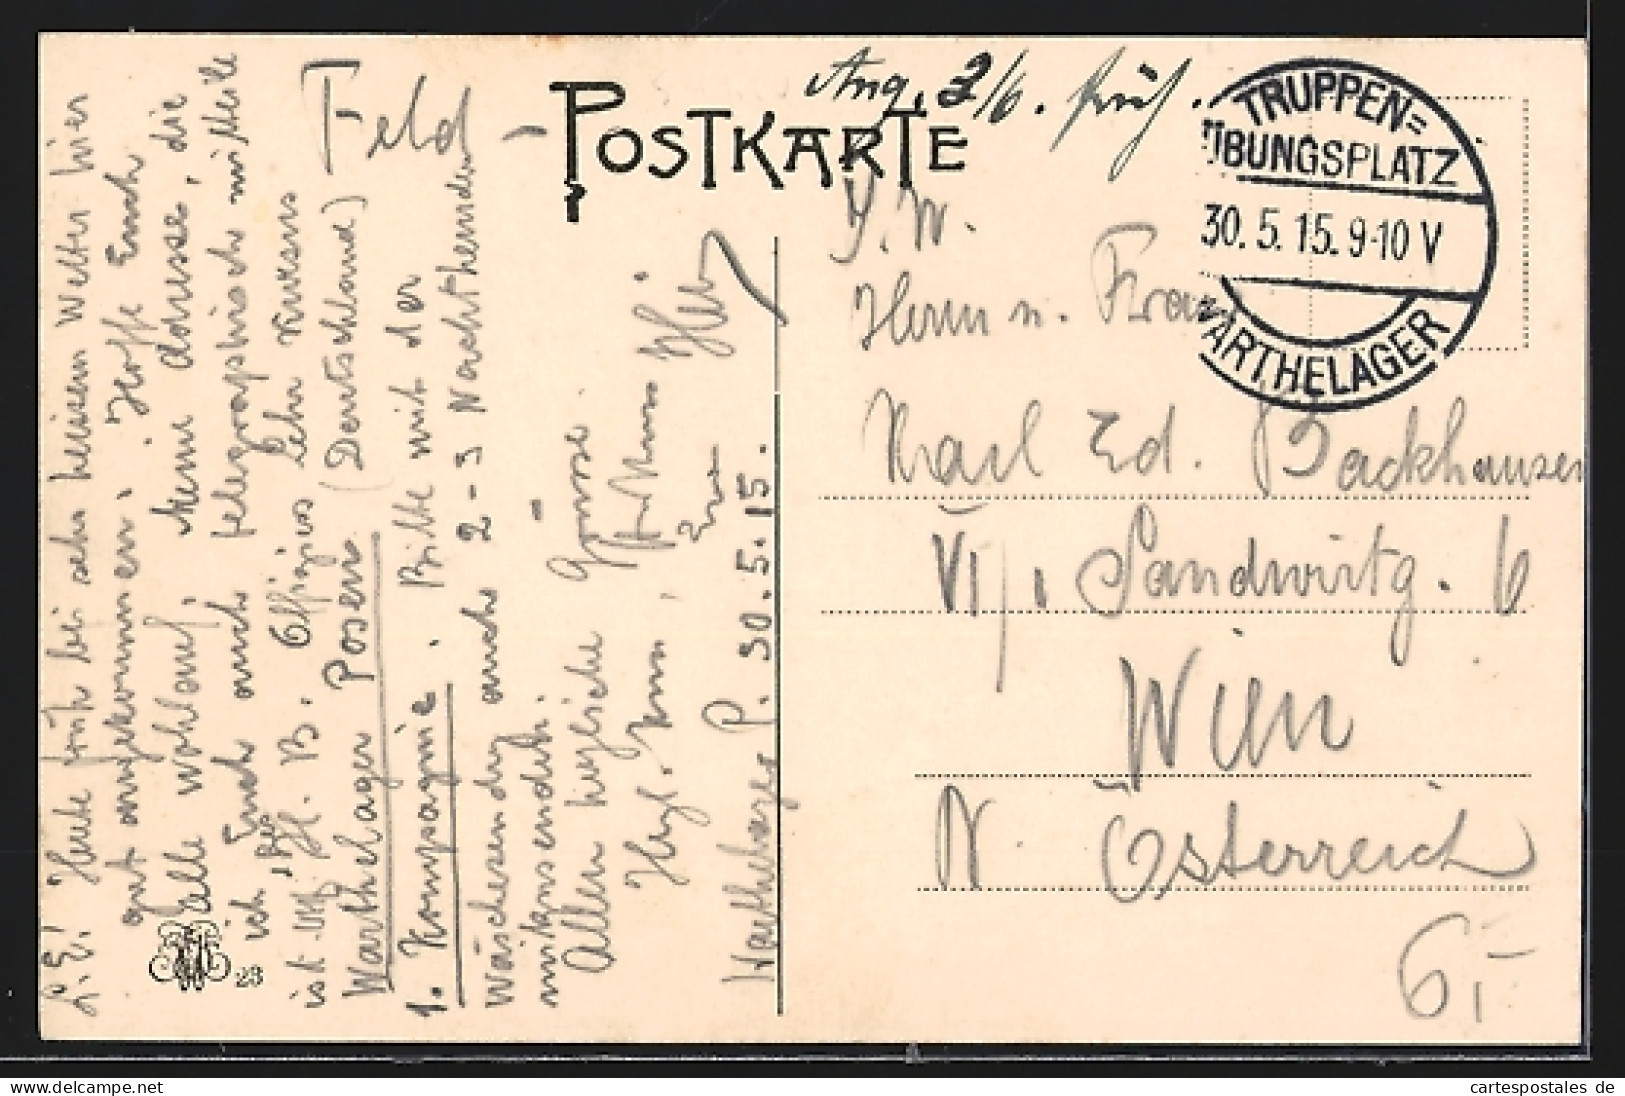 Feld-
POSTKARTE
Ang. 2/6. früh.
TRUPPEN=
ÜBUNGSPLATZ
30. 5. 15. 9-10 V
WARTHELAGER
L. E! Heute früh bei sehr heissem Wetter hier
gut angekommen. Hoffe Euch
alle wohlauf. Meine Adresse, die
ich Euch auch telegraphisch mitteile
ist Uff. Offizier Lehr Kursus
Warthelager Posen (Deutschland)
1. Kompagnie. Bitte mit der
Wäschesendg auch 2-3 Nachthemden
mitzusenden.
Allen herzliche Grüsse
Herzl.
Euer
Warthelager P. 30. 5. 15.
Herrn u. Frau
Karl Ed. Backhausen
VI/1 Sandwirtg. 6
Wien
N. Österreich
23
www.delcampe.net
cartespostales de